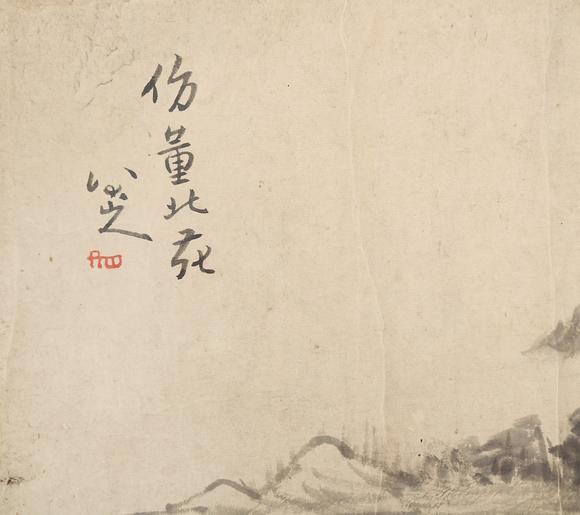 仿董北苑
八大山人